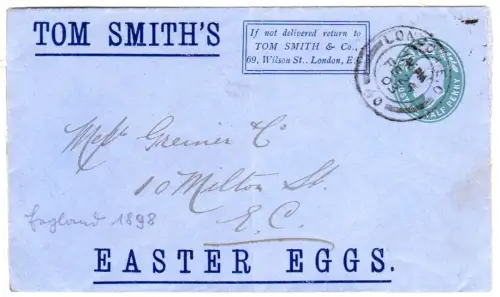 TOM SMITH'S
If not delivered return to
TOM SMITH & Co.,
69, Wilson St., London, E.
LONDON E.C
HALF PENNY
Messrs Greiner & Co
10 Milton St.
E.C.
England 1898
EASTER EGGS.